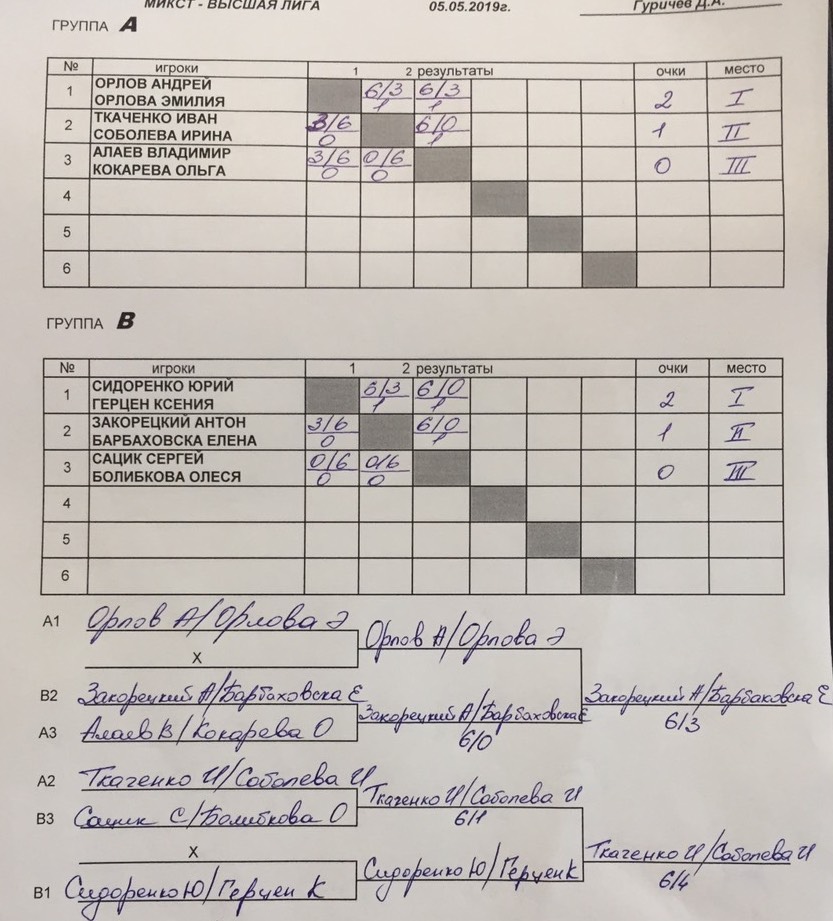 МИКСТ - ВЫСШАЯ ЛИГА 05.05.2019г. Гуричев Д.А.
ГРУППА A
№ игроки 1 2 результаты очки место
1 ОРЛОВ АНДРЕЙ
ОРЛОВА ЭМИЛИЯ
6/3 6/3 2 I
1 1
2 ТКАЧЕНКО ИВАН
СОБОЛЕВА ИРИНА
3/6 6/0 1 II
0 1
3 АЛАЕВ ВЛАДИМИР
КОКАРЕВА ОЛЬГА
3/6 0/6 0 III
0 0
4
5
6
ГРУППА B
№ игроки 1 2 результаты очки место
1 СИДОРЕНКО ЮРИЙ
ГЕРЦЕН КСЕНИЯ
6/3 6/0 2 I
1 1
2 ЗАКОРЕЦКИЙ АНТОН
БАРБАХОВСКА ЕЛЕНА
3/6 6/0 1 II
0 1
3 САЦИК СЕРГЕЙ
БОЛИБКОВА ОЛЕСЯ
0/6 0/6 0 III
0 0
4
5
6
A1 Орлов А/Орлова Э
Орлов А/Орлова Э
X
B2 Закорецкий А/Барбаховска Е
Закорецкий А/Барбаховска Е
6/3
Закорецкий А/Барбаховска Е
6/0
A3 Алаев В/Кокарева О
A2 Ткаченко И/Соболева И
Ткаченко И/Соболева И
6/1
B3 Сацик С/Болибкова О
X
Ткаченко И/Соболева И
6/4
Сидоренко Ю/Герцен К
B1 Сидоренко Ю/Герцен К